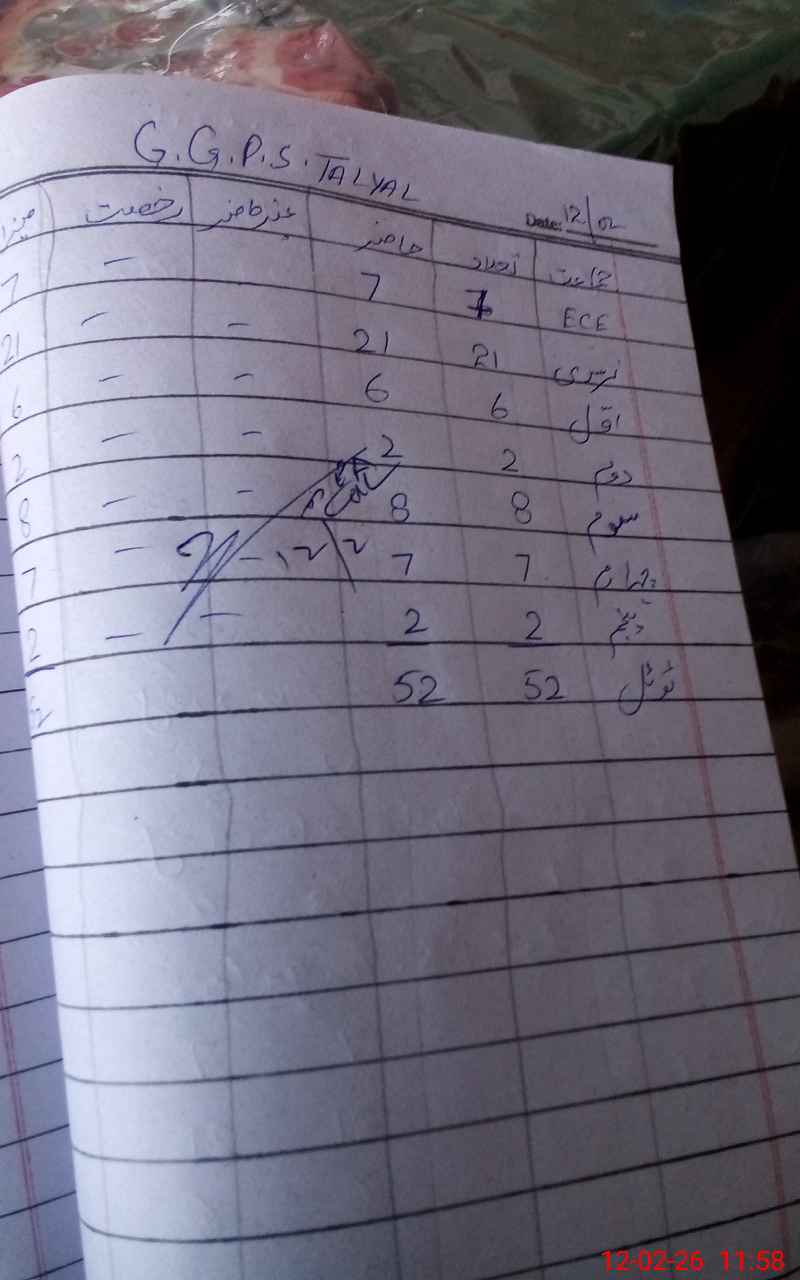 G.G.P.S. TALYAL
Date: 12/02
جماعت تعداد حاضر غیر حاضر رخصت میزان
ECE 7 7 – 7
نرسری 21 21 – – 21
اول 6 6 – – 6
دوم 2 2 – – 2
سوم 8 8 – – 8
چہارم 7 7 – – 7
پنجم 2 2 – – 2
ٹوٹل 52 52 52
12/2
12-02-26 11:58